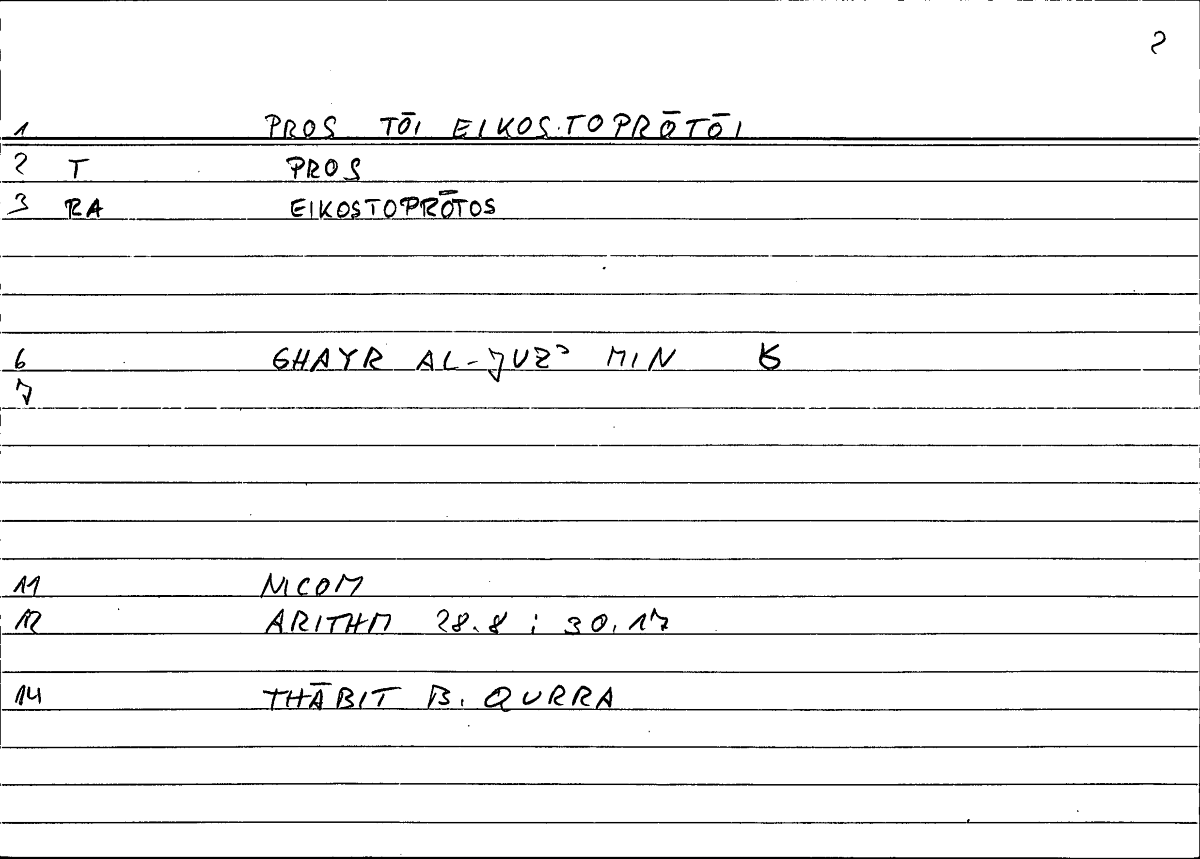 2
1 PROS TŌI EIKOSTOPRŌTŌI
2 T PROS
3 RA EIKOSTOPRŌTOS
6 GHAYR AL-JUZʾ MIN
7
11 NICOM
12 ARITHM 28.8 ; 30.17
14 THĀBIT B. QURRA